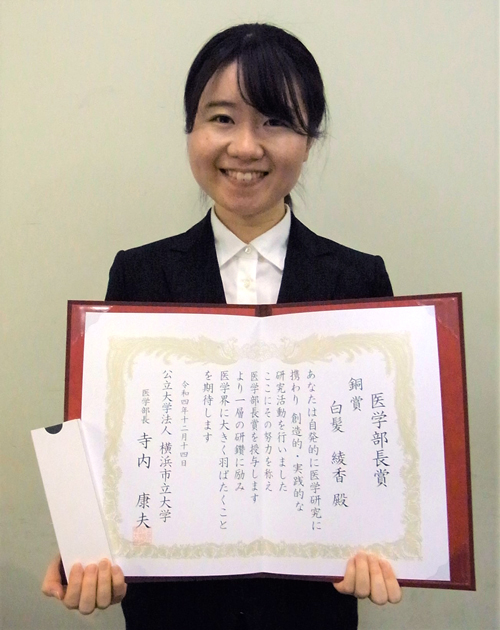 医学部長賞
銅賞
白髪 綾香 殿
あなたは自発的に医学研究に
携わり 創造的・実践的な
研究活動を行いました
ここにその努力を称え
医学部長賞を授与します
より一層の研鑽に励み
医学界に大きく羽ばたくこと
を期待します
令和四年十二月十四日
公立大学法人 横浜市立大学
医学部長 寺内 康夫